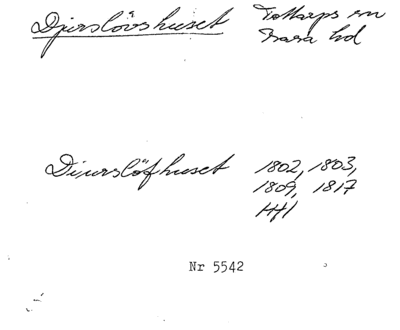 Djurslövshuset
Tottarps sn
Bara hd
Diurslöfhuset
1802, 1803,
1809, 1817
Hfl
Nr 5542